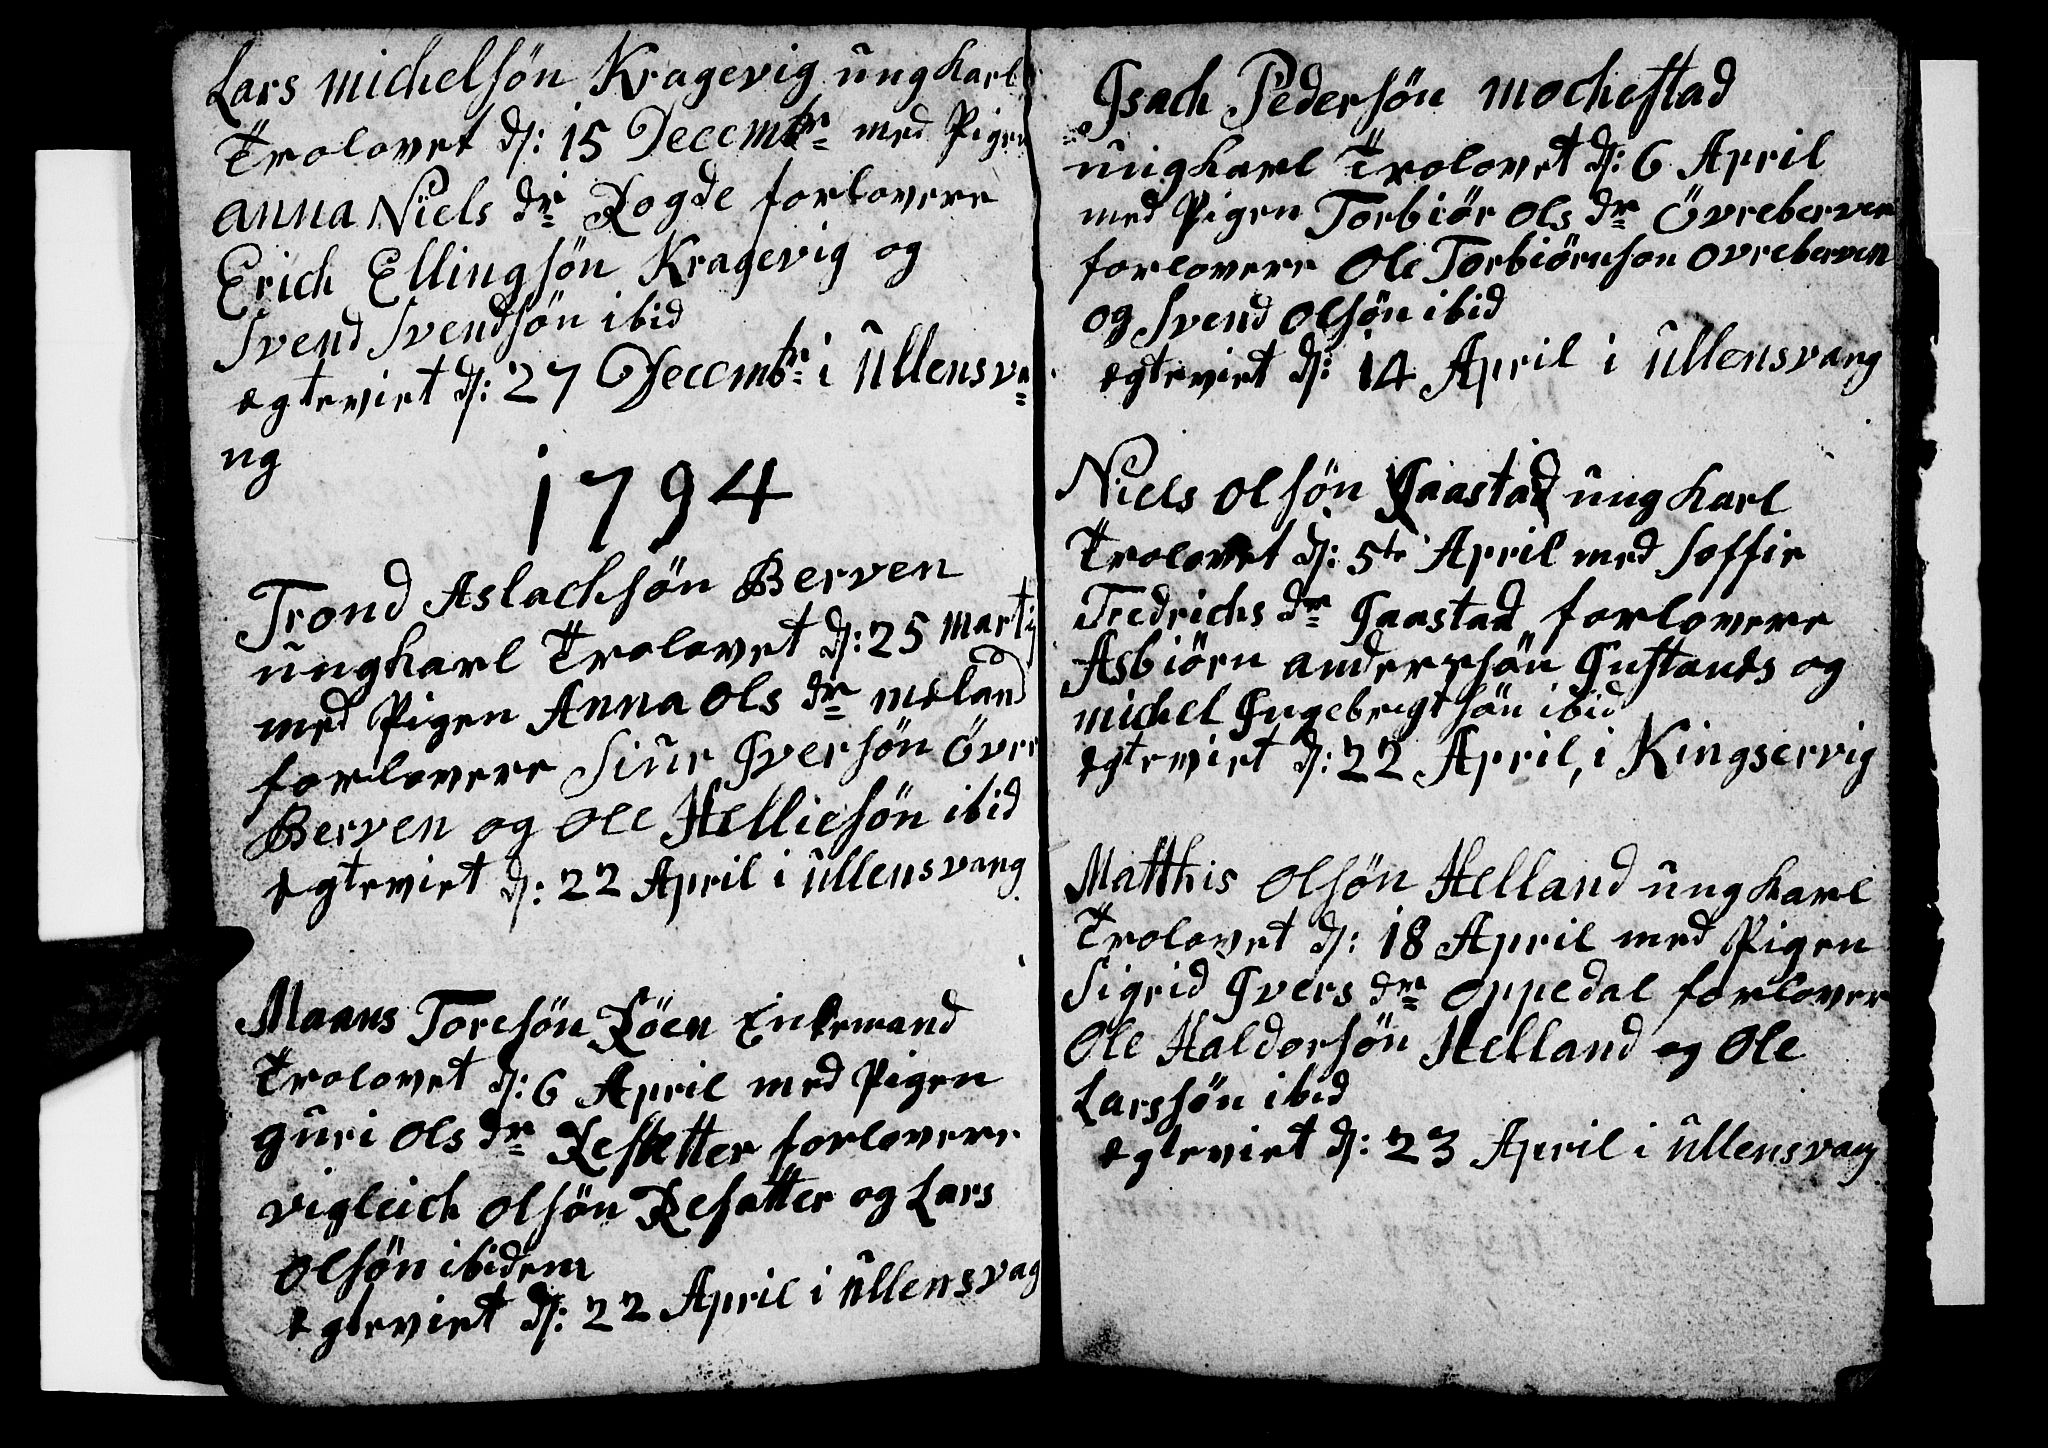 Lars michelsön Kragevig ungkarl
Trolovet d: 15 Decembr med Pigen
anna Niels dr Rogde forlovere
Erich Ellingsön Kragevig og
Svend Svendsön ibid
egtevirt d: 27 Decembr i Ullensva=
ng
1794
Trond Aslachsön Berven
ungkarl Trolovet d: 25 martij
med Pigen Anna Ols dr meland
forlovere Siur Iversön Övre
Berven og Ole Helliesön ibid
egtevirt d: 22 April i Ullensvang
Maans Toresön Röen Enkemand
Trolovet d: 6 April med Pigen
guri Ols dr Resetter forlovere
vigleich Olsön Resatter og Lars
Olsön ibidem
egtevirt d: 22 April i Ullensvag
Isach Pedersön mochestad
ungkarl Trolovet d: 6 April
med Pigen Torbiör Ols dr Övreberven
forlovere Ole Torbiörnson ovreberven
og Svend Olsön ibid
egtevirt d: 14 April i Ullensvang
Niels Olsön Jaastad ungkarl
Trolovet d: 5te April med Soffie
Fredrichs dr Jaastad forlovere
Asbiörn andersön
michel Ingebregtsön ibid
egtevirt d: 22 April, i Kingservig
Matthis Olsön Helland ungkarl
Trolovet d: 18 April med Pigen
Sigrid Ivers dr Oppedal forlover
Ole Haldorsön Helland og Ole
Larssön ibid
egtevirt d: 23 April i Ullensvang